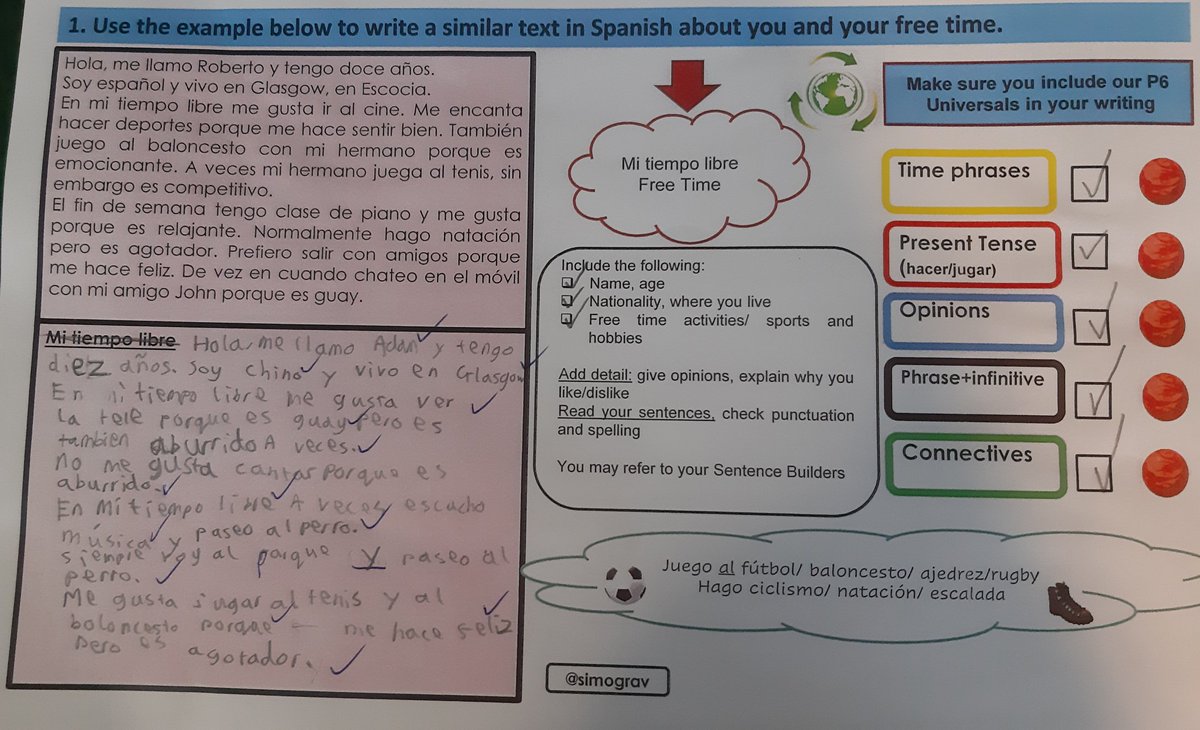 1. Use the example below to write a similar text in Spanish about you and your free time.
Hola, me llamo Roberto y tengo doce años.
Soy español y vivo en Glasgow, en Escocia.
En mi tiempo libre me gusta ir al cine. Me encanta
hacer deportes porque me hace sentir bien. También
juego al baloncesto con mi hermano porque es
emocionante. A veces mi hermano juega al tenis, sin
embargo es competitivo.
El fin de semana tengo clase de piano y me gusta
porque es relajante. Normalmente hago natación
pero es agotador. Prefiero salir con amigos porque
me hace feliz. De vez en cuando chateo en el móvil
con mi amigo John porque es guay.
Mi tiempo libre Hola, me llamo Adan y tengo
diez años. Soy chino y vivo en Glasgow
En mi tiempo libre me gusta ver
la tele porque es guay pero es
tambien aburrido A veces.
no me gusta cantar porque es
aburrido.
En Mi tiempo libre A veces escucho
música y paseo al perro.
siempre voy al parque y paseo al
perro.
Me gusta jugar al tenis y al
boloncesto porque me hace feliz
pero es agotador.
Mi tiempo libre
Free Time
Include the following:
Name, age
Nationality, where you live
Free time activities/ sports and
hobbies
Add detail: give opinions, explain why you
like/dislike
Read your sentences, check punctuation
and spelling
You may refer to your Sentence Builders
Make sure you include our P6
Universals in your writing
Time phrases
Present Tense
(hacer/jugar)
Opinions
Phrase+infinitive
Connectives
Juego al fútbol/ baloncesto/ ajedrez/rugby
Hago ciclismo/ natación/ escalada
@simograv